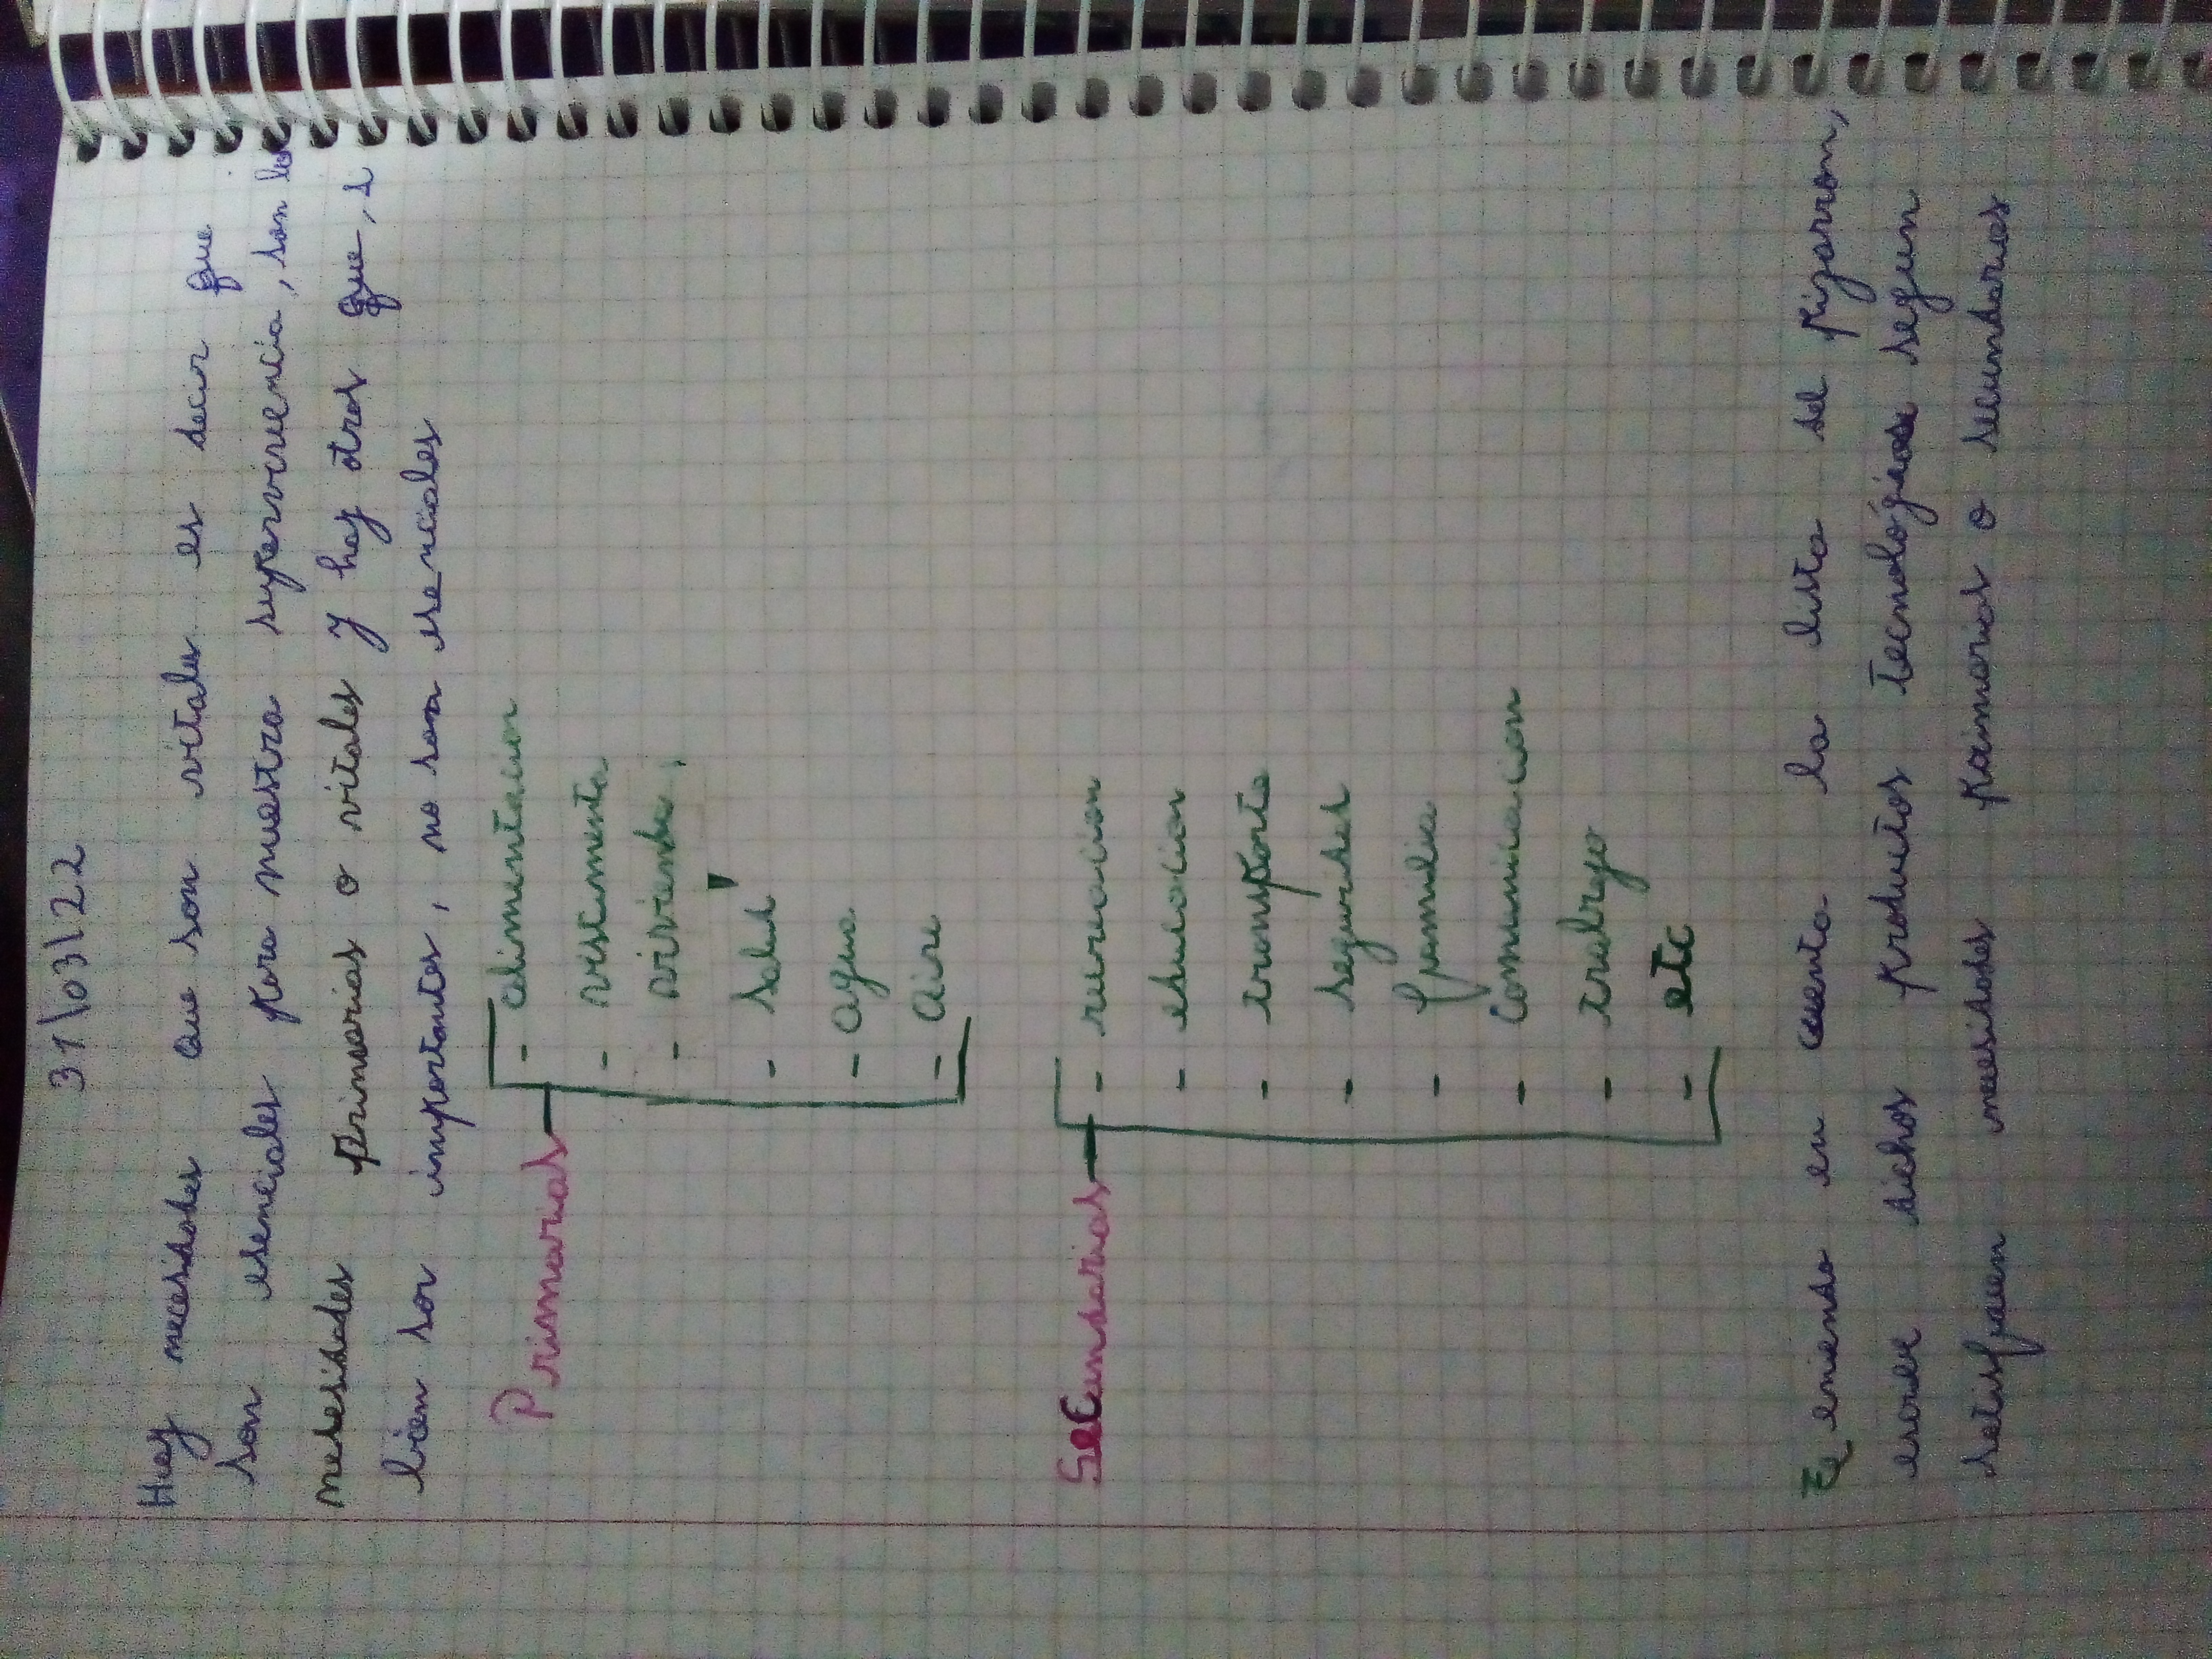 31/03/22
Hay necesidades que son vitales es decir que
son esenciales para nuestra supervivencia, son las
nesesidades primarias o vitales y hay otras que, si
bien son importantes, no son esenciales
Primarias
- alimentacion
- vestimenta
- vivienda
- salud
- agua
- aire
SeCundarias
- recreacion
- educacion
- transporte
- seguridad
- familia
- Comunicacion
- trabajo
- etc
Teniendo en cuenta la lista del pizarron,
dichos productos tecnológicos segun
satisfacen necesidades primarias o secundarias